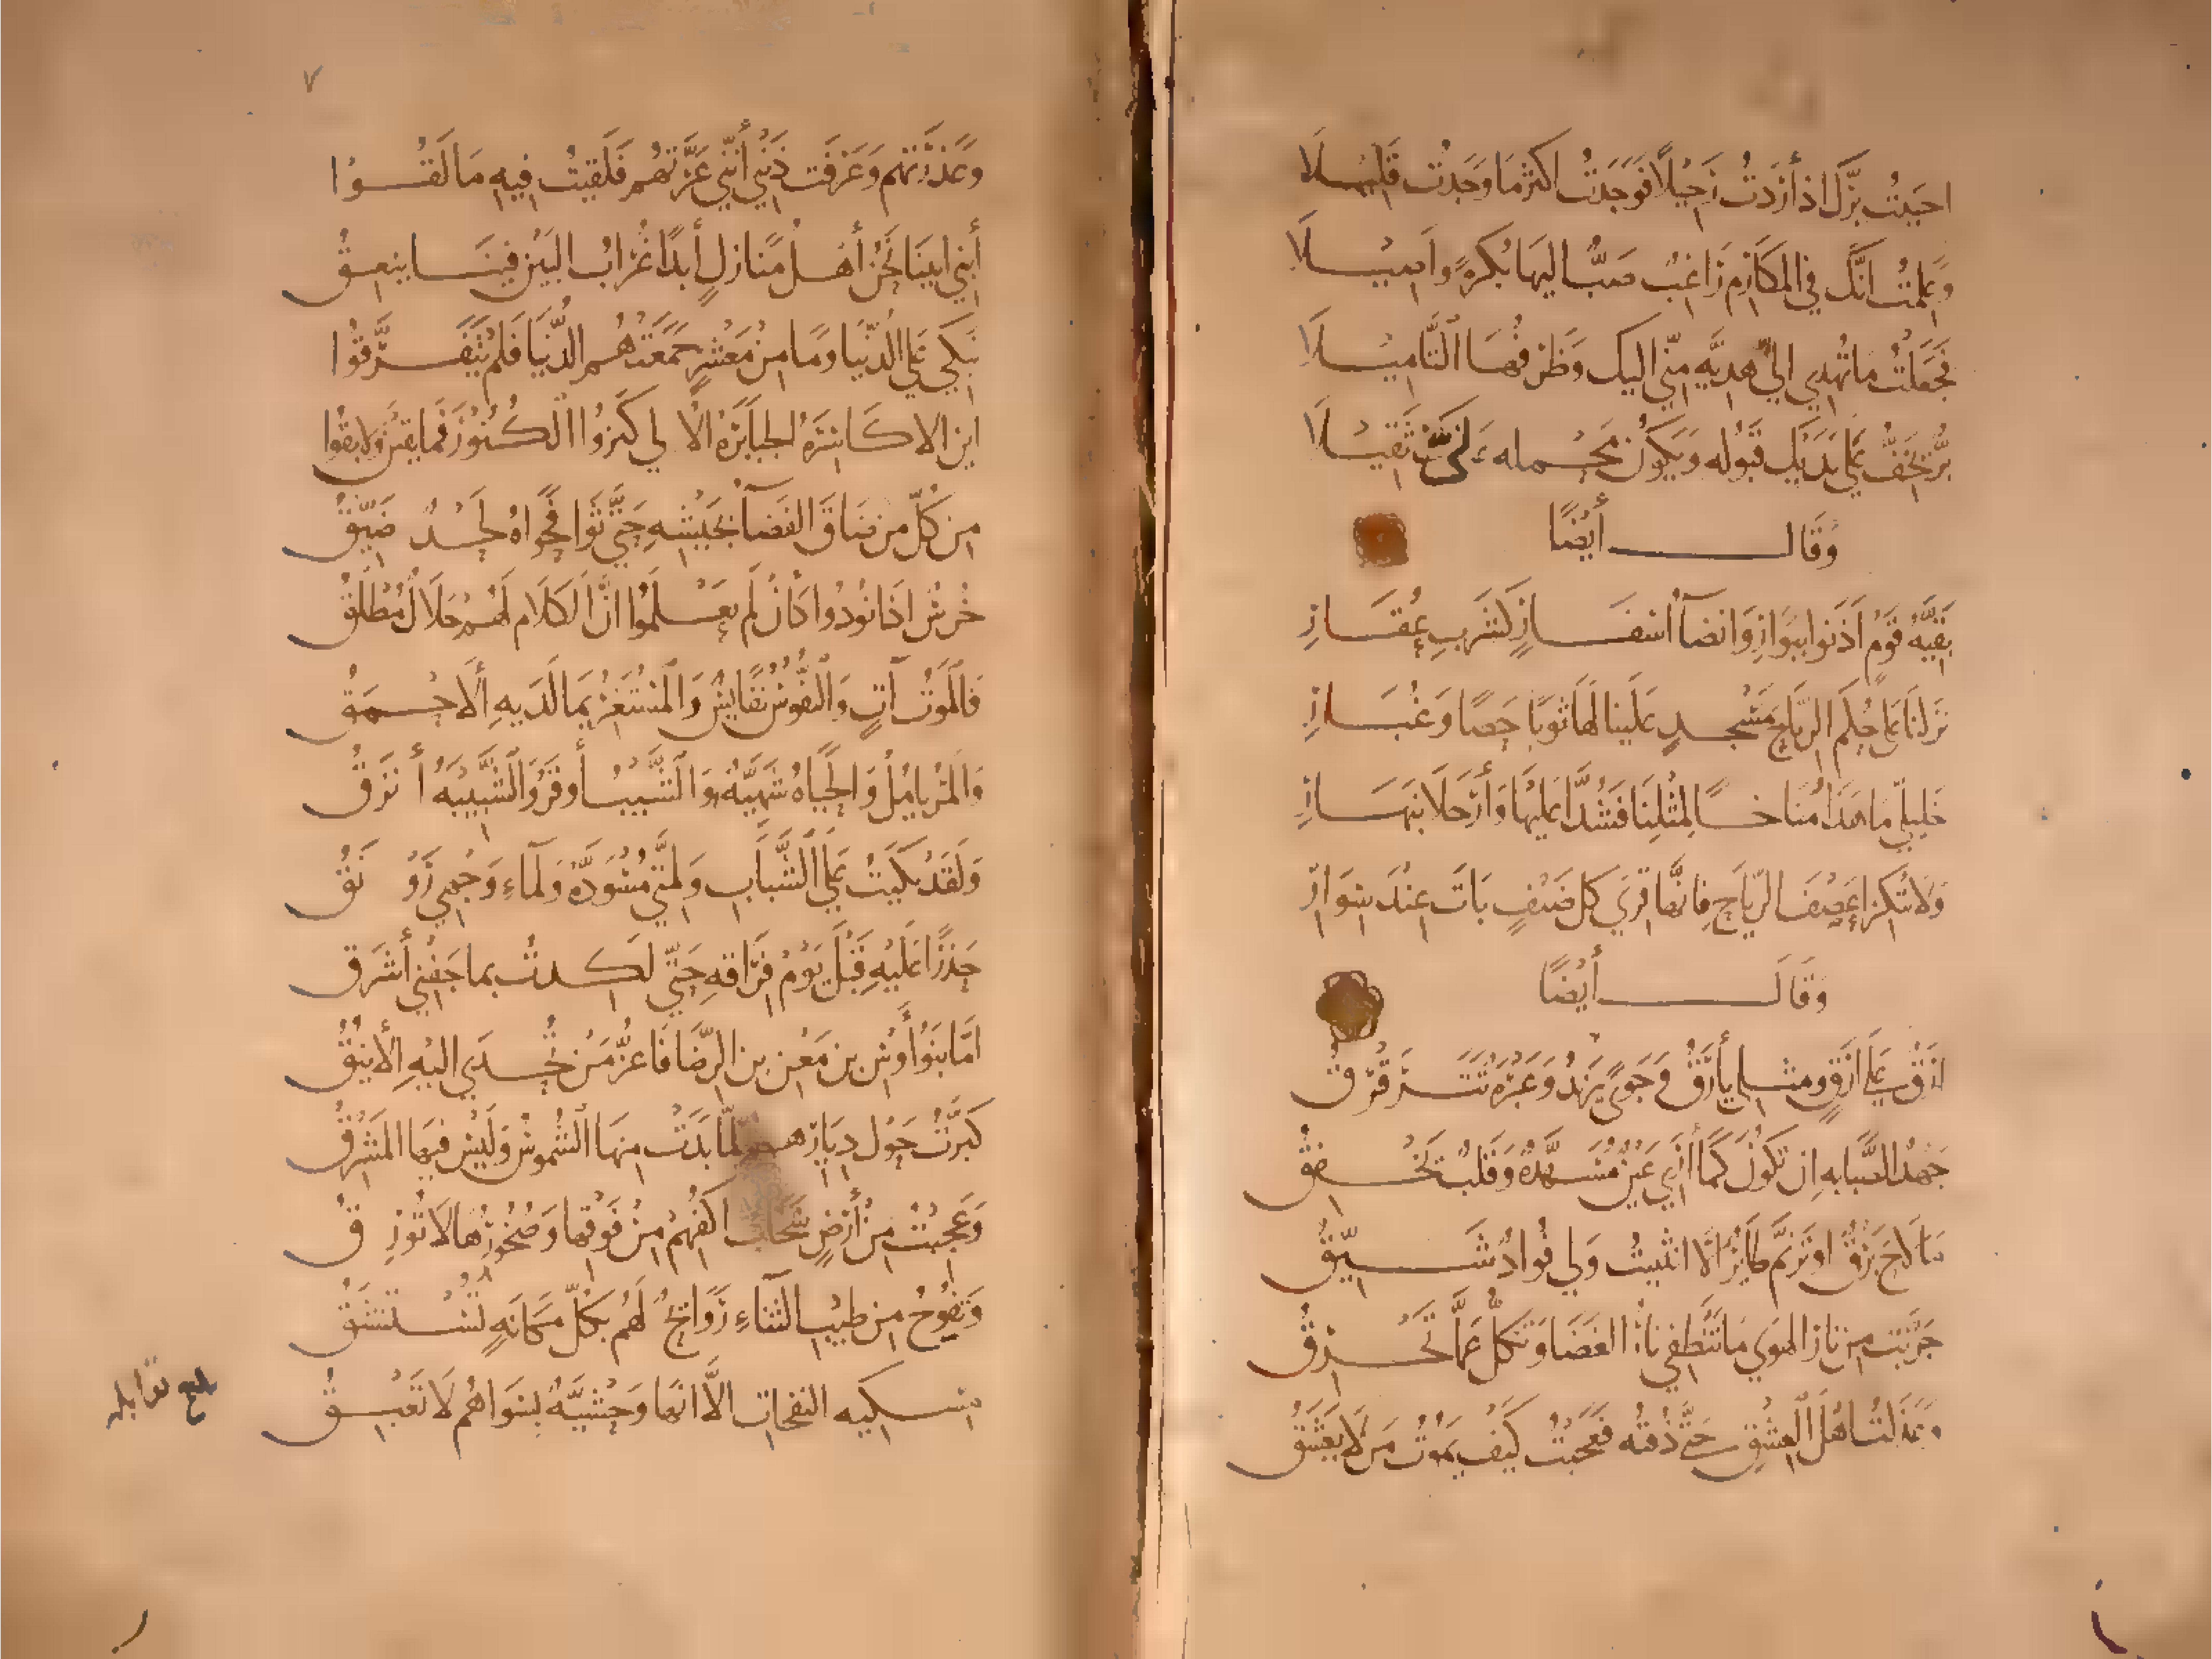 احببتُ برَّكَ اذ أردتُ رحيلًا فوجدتُ اكثر ما وجدتُ قليلَا
وعلمتُ انَّكَ في المكارم راغبٌ صبٌّ اليها بُكرةً واصيلَا
فجعلتُ ما تُهدي اليَّ هديّةً منّي اليك وظرفُها التّاميلَا
برٌّ يخفُّ على يديك قبولُه ويكون محمله علىَّ ثقيلَا
وقال أيضًا
بقيّةُ قومٍ آذنوا ببوارِ وانضآءُ أسفارٍ كشربِ عُقارِ
نزلنا على حكم الرّياح بمسجدٍ علينا لها ثوبا حصًا وغُبارِ
خليليّ ما هذا مُناخًا لمثلنا فشُدّا عليها وأرحلا بنهارِ
ولا تُنكرا عصف الرّياح فإنّها قِرى كل ضيفٍ باتَ عند سِوارِ
وقالَ أيضًا
ارَقٌ على أرَقٍ ومثلي يأرَقُ وجوًى يزيدُ وعَبرةٌ تترقرقُ
جهدُ الصّبابه ان تكونَ كما أُرى عينٌ مُسهَّدةٌ وقلبٌ يخفقُ
ما لاحَ برقٌ او ترنّم طايرٌ الّا انثنيتُ ولي فوادٌ شيّقُ
جرّبتُ من نار الهوى ما تنطفي نارُ الغضا وتكلُّ عمّا تحرقُ
وعذلتُ اهلَ العشقِ حتّى ذُقتُه فعجبتُ كيفَ يموتُ من لا يعشَقُ
وعذرتهم وعرفتُ ذنبي أنّني عيّرتهم فلقيتُ فيهِ ما لقُوا
أبني أبينا نحنُ أهلُ منازلٍ أبدًا غُرابُ البينِ فينا ينعقُ
نبكي على الدّنيا وما من معشرٍ جمعتهُم الدّنيا فلم يتفرّقُوا
اين الاكاسرةُ الجبابرةُ الأُلى كنزُوا الكُنُوزَ فما بقينَ ولا بقُوا
من كلّ من ضاقَ الفضآءُ بجيشهِ حتّى ثوا فحواهُ لحدٌ ضيّقُ
خُرسٌ اذا نُودُوا كأن لم يعلمُوا انّ الكلام لهُم حلالٌ مُطلَقُ
فالموتُ آتٍ والنّفوسُ نفايسٌ والمستغرُّ بما لديهِ الأحمَقُ
والمرُ ياملُ والحياةُ شهيّةٌ والشّيبُ أوقرُ والشّبيبةُ أنزَقُ
ولقد بكيتُ على الشّبابِ ولمّتي مُسودّةٌ ولمآءِ وجهي رَونَقُ
حذرًا عليهِ قبلَ يومِ فراقهِ حتّى لكدتُ بما جفني أشرَق
امّا بنُوا أوسِ بن معن بن الرّضا فاعزُّ من تُحدى اليهِ الأينُقُ
كبّرتُ حول ديارهم لمّا بدت منها الشّموسُ وليس فيها المشرِقُ
وعجبتُ من أرضٍ سحابُ اكفّهم من فوقها وصخورُها لا تُورِقُ
وتفوحُ من طيبِ الثّناءِ روايحٌ لهُم بكلّ مكانهٍ تُستنشَقُ
مسكيه النفحاتِ الّا انّها وحشيّةٌ بسواهُم لا تعبقُ
بلغ مقابله
٧